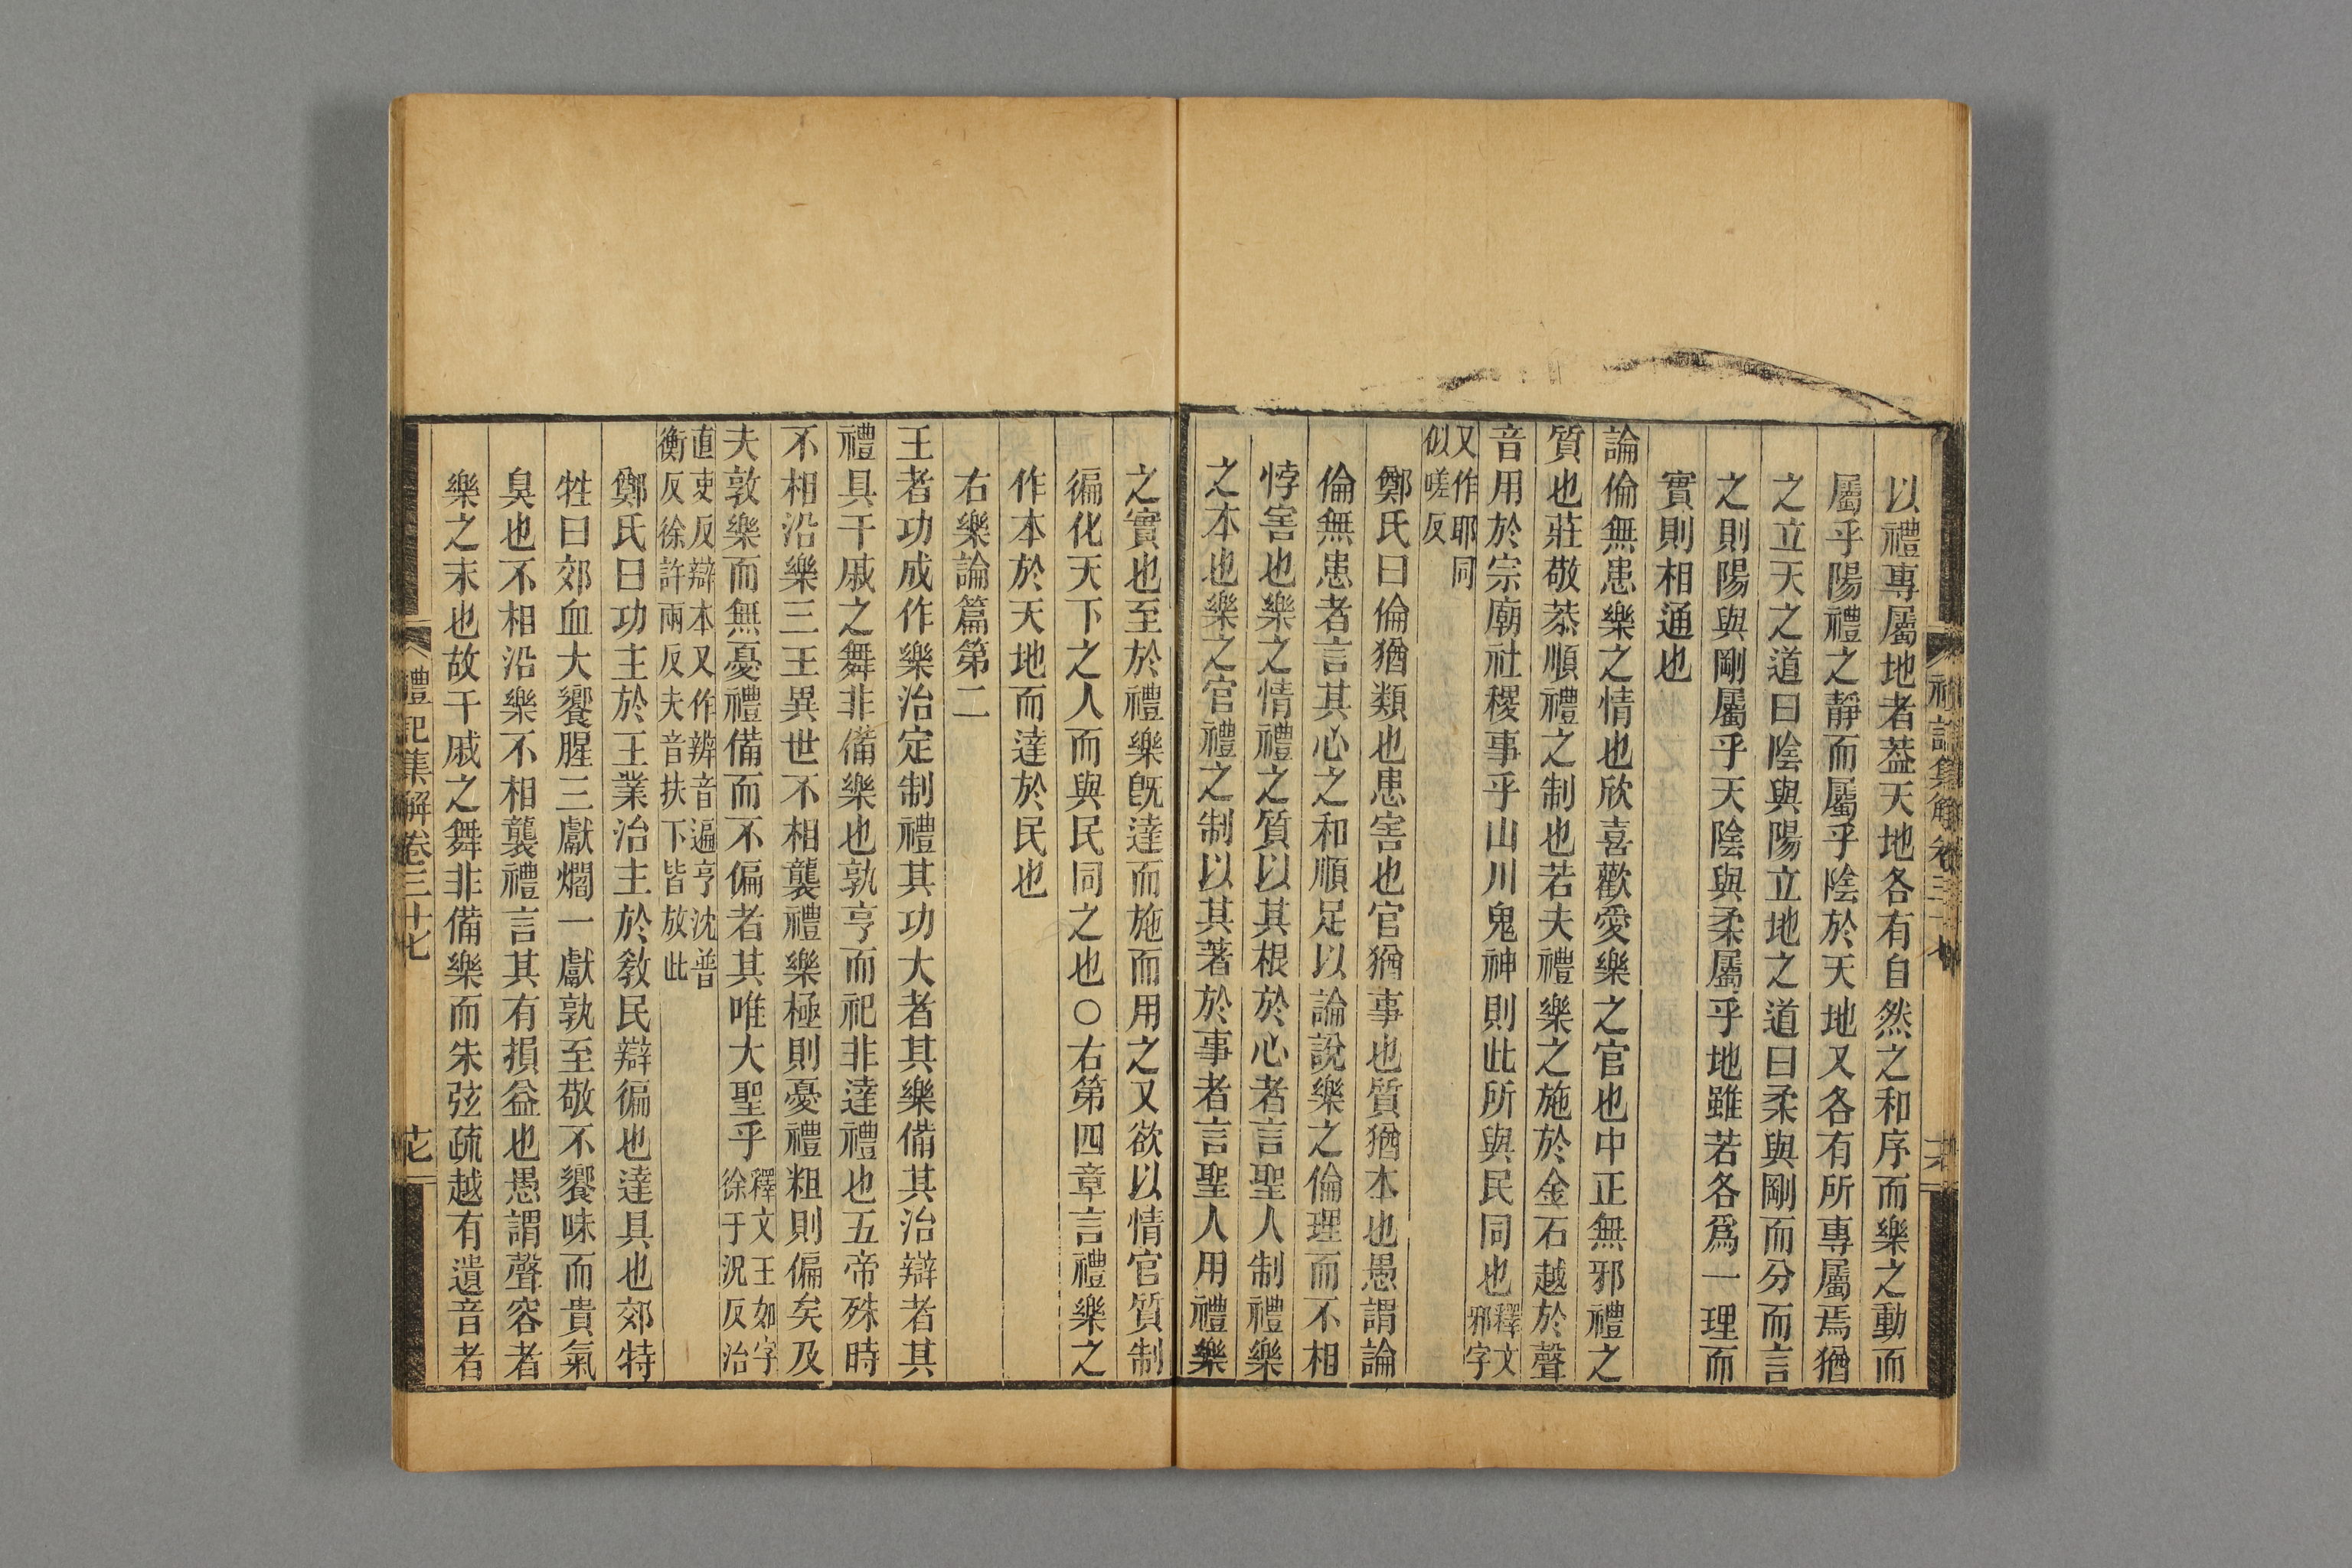 以禮專屬地者葢天地各有自然之和序而樂之動而
屬乎陽禮之靜而屬乎陰於天地又各有所專屬焉猶
之立天之道曰陰與陽立地之道曰柔與剛而分而言
之則陽與剛屬乎天陰與柔屬乎地雖若各爲一理而
實則相通也
論倫無患樂之情也欣喜歡愛樂之官也中正無邪禮之
質也莊敬恭順禮之制也若夫禮樂之施於金石越於聲
音用於宗廟社稷事乎山川鬼神則此所與民同也釋文邪字
又作耶同似嗟反
鄭氏曰倫猶類也患害也官猶事也質猶本也愚謂論
倫無患者言其心之和順足以論說樂之倫理而不相
悖害也樂之情禮之質以其根於心者言聖人制禮樂
之本也樂之官禮之制以其著於事者言聖人用禮樂
之實也至於禮樂旣達而施而用之又欲以情官質制
徧化天下之人而與民同之也○右第四章言禮樂之
作本於天地而達於民也
右樂論篇第二
王者功成作樂治定制禮其功大者其樂備其治辯者其
禮具干戚之舞非備樂也孰亨而祀非達禮也五帝殊時
不相沿樂三王異世不相襲禮樂極則憂禮粗則偏矣及
夫敦樂而無憂禮備而不偏者其唯大聖乎釋文王如字徐于況反治
直吏反辯本又作辨音遍亨沈普衡反徐許兩反夫音扶下皆放此
鄭氏曰功主於王業治主於敎民辯徧也達具也郊特
牲曰郊血大饗腥三獻爓一獻孰至敬不饗味而貴氣
臭也不相沿樂不相襲禮言其有損益也愚謂聲容者
樂之末也故干戚之舞非備樂而朱弦疏越有遺音者
禮記集解卷三十七